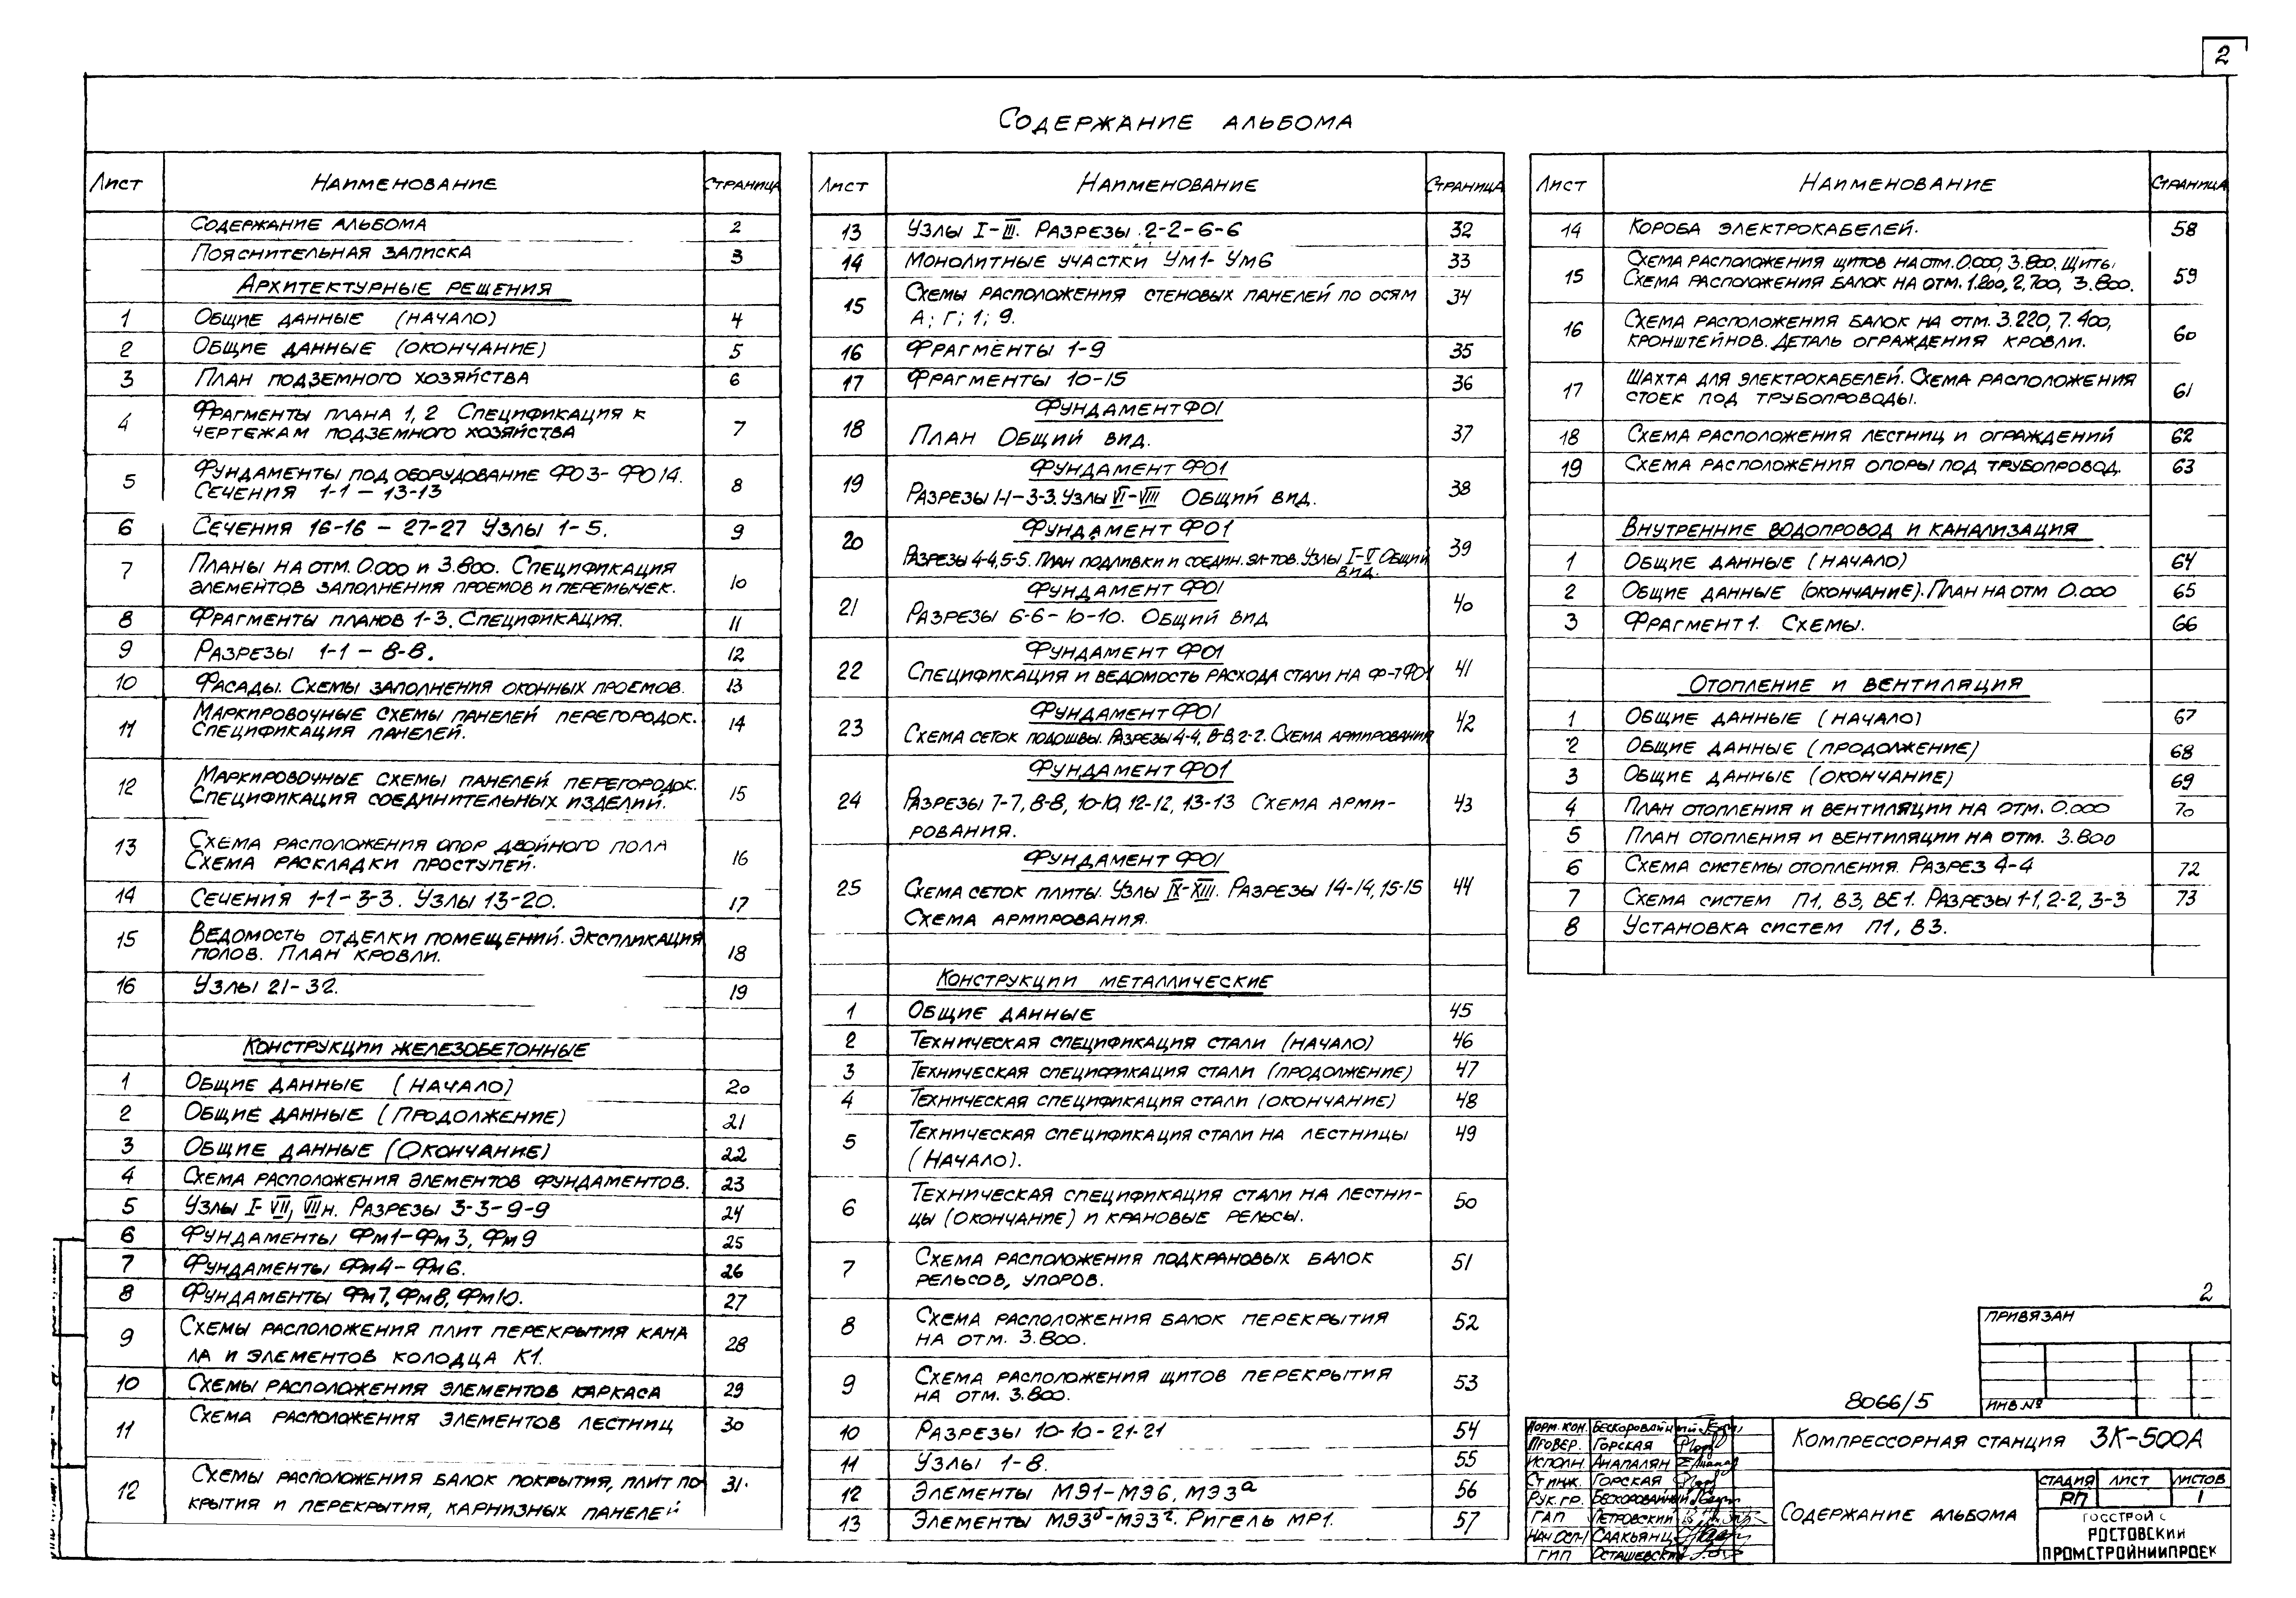 2
Содержание альбома
Лист Наименование Страница
Содержание альбома 2
Пояснительная записка 3
Архитектурные решения
1 Общие данные (начало) 4
2 Общие данные (окончание) 5
3 План подземного хозяйства 6
4 Фрагменты плана 1, 2 Спецификация к
чертежам подземного хозяйства 7
5 Фундаменты под оборудование ФО3-ФО14.
Сечения 1-1 – 13-13 8
6 Сечения 16-16 – 27-27 Узлы 1-5. 9
7 Планы на отм. 0.000 и 3.800. Спецификация
элементов заполнения проемов и перемычек. 10
8 Фрагменты планов 1-3. Спецификация. 11
9 Разрезы 1-1 – 8-8. 12
10 Фасады. Схемы заполнения оконных проемов. 13
11 Маркировочные схемы панелей перегородок.
Спецификация панелей. 14
12 Маркировочные схемы панелей перегородок.
Спецификация соединительных изделий. 15
13 Схема расположения опор двойного пола
Схема раскладки проступей. 16
14 Сечения 1-1-3-3. Узлы 13-20. 17
15 Ведомость отделки помещений. Экспликация
полов. План кровли. 18
16 Узлы 21-32. 19
Конструкции железобетонные
1 Общие данные (начало) 20
2 Общие данные (продолжение) 21
3 Общие данные (Окончание) 22
4 Схема расположения элементов фундаментов. 23
5 Узлы I-VII, VIIIн. Разрезы 3-3-9-9 24
6 Фундаменты Фм1-Фм3, Фм9 25
7 Фундаменты Фм4-Фм6. 26
8 Фундаменты Фм7, Фм8, Фм10. 27
9 Схемы расположения плит перекрытия кана
ла и элементов колодца К1. 28
10 Схемы расположения элементов каркаса 29
11 Схема расположения элементов лестниц 30
12 Схемы расположения балок покрытия, плит по
крытия и перекрытия, карнизных панелей 31.
Лист Наименование Страница
13 Узлы I-III. Разрезы 2-2-6-6 32
14 Монолитные участки Ум1- Ум6 33
15 Схемы расположения стеновых панелей по осям
А; Г; 1; 9. 34
16 Фрагменты 1-9 35
17 Фрагменты 10-15 36
Фундамент ФО1
18 План Общий вид. 37
Фундамент ФО1
19 Разрезы 1-1-3-3. Узлы VI-VIII Общий вид. 38
Фундамент ФО1
20 Разрезы 4-4, 5-5. План подливки и соедин. эл-тов. Узлы I-V Общий
вид. 39
Фундамент ФО1
21 Разрезы 6-6-10-10. Общий вид 40
Фундамент ФО1
22 Спецификация и ведомость расхода стали на ф-т ФО1 41
Фундамент ФО1
23 Схема сеток подошвы. Разрезы 4-4, в-в, 2-2. Схема армирования 42
Фундамент ФО1
24 Разрезы 7-7, 8-8, 10-10, 12-12, 13-13 Схема арми-
рования. 43
Фундамент ФО1
25 Схема сеток плиты. Узлы IX-XIII. Разрезы 14-14, 15-15
Схема армирования. 44
Конструкции металлические
1 Общие данные 45
2 Техническая спецификация стали (начало) 46
3 Техническая спецификация стали (продолжение) 47
4 Техническая спецификация стали (окончание) 48
5 Техническая спецификация стали на лестницы
(Начало). 49
6 Техническая спецификация стали на лестни-
цы (окончание) и крановые рельсы. 50
7 Схема расположения подкрановых балок
рельсов, упоров. 51
8 Схема расположения балок перекрытия
на отм. 3.800. 52
9 Схема расположения щитов перекрытия
на отм. 3.800. 53
10 Разрезы 10-10-21-21 54
11 Узлы 1-8. 55
12 Элементы МЭ1-МЭ6, МЭ3а 56
13 Элементы МЭ3б-МЭ3г. Ригель МР1. 57
Лист Наименование Страница
14 Короба электрокабелей. 58
15 Схема расположения щитов на отм. 0.000, 3.800. Щиты
Схема расположения балок на отм. 1.200, 2.700, 3.800. 59
16 Схема расположения балок на отм. 3.220, 7.400,
кронштейнов. Деталь ограждения кровли. 60
17 Шахта для электрокабелей. Схема расположения
стоек под трубопроводы. 61
18 Схема расположения лестниц и ограждений 62
19 Схема расположения опоры под трубопровод. 63
Внутренние водопровод и канализация
1 Общие данные (начало) 64
2 Общие данные (окончание). План на отм 0.000 65
3 Фрагмент 1. Схемы. 66
Отопление и вентиляция
1 Общие данные (начало) 67
2 Общие данные (продолжение) 68
3 Общие данные (окончание) 69
4 План отопления и вентиляции на отм. 0.000 70
5 План отопления и вентиляции на отм. 3.800
6 Схема системы отопления. Разрез 4-4 72
7 Схема систем П1, В3, ВЕ1. Разрезы 1-1, 2-2, 3-3 73
8 Установка систем П1, В3.
2
Привязан
Инв.№
8066/5
Норм.кон. Бескоровайный
Провер. Горская
Исполн. Анапалян
Ст инж. Горская
Рук.гр. Бескоровайный
ГАП Петровский
Нач ОСП Саакьянц
ГИП Осташевский
Компрессорная станция 3К-500А
Содержание альбома
Стадия Лист Листов
РП 1
Госстрой С
Ростовский
Промстройниипроек